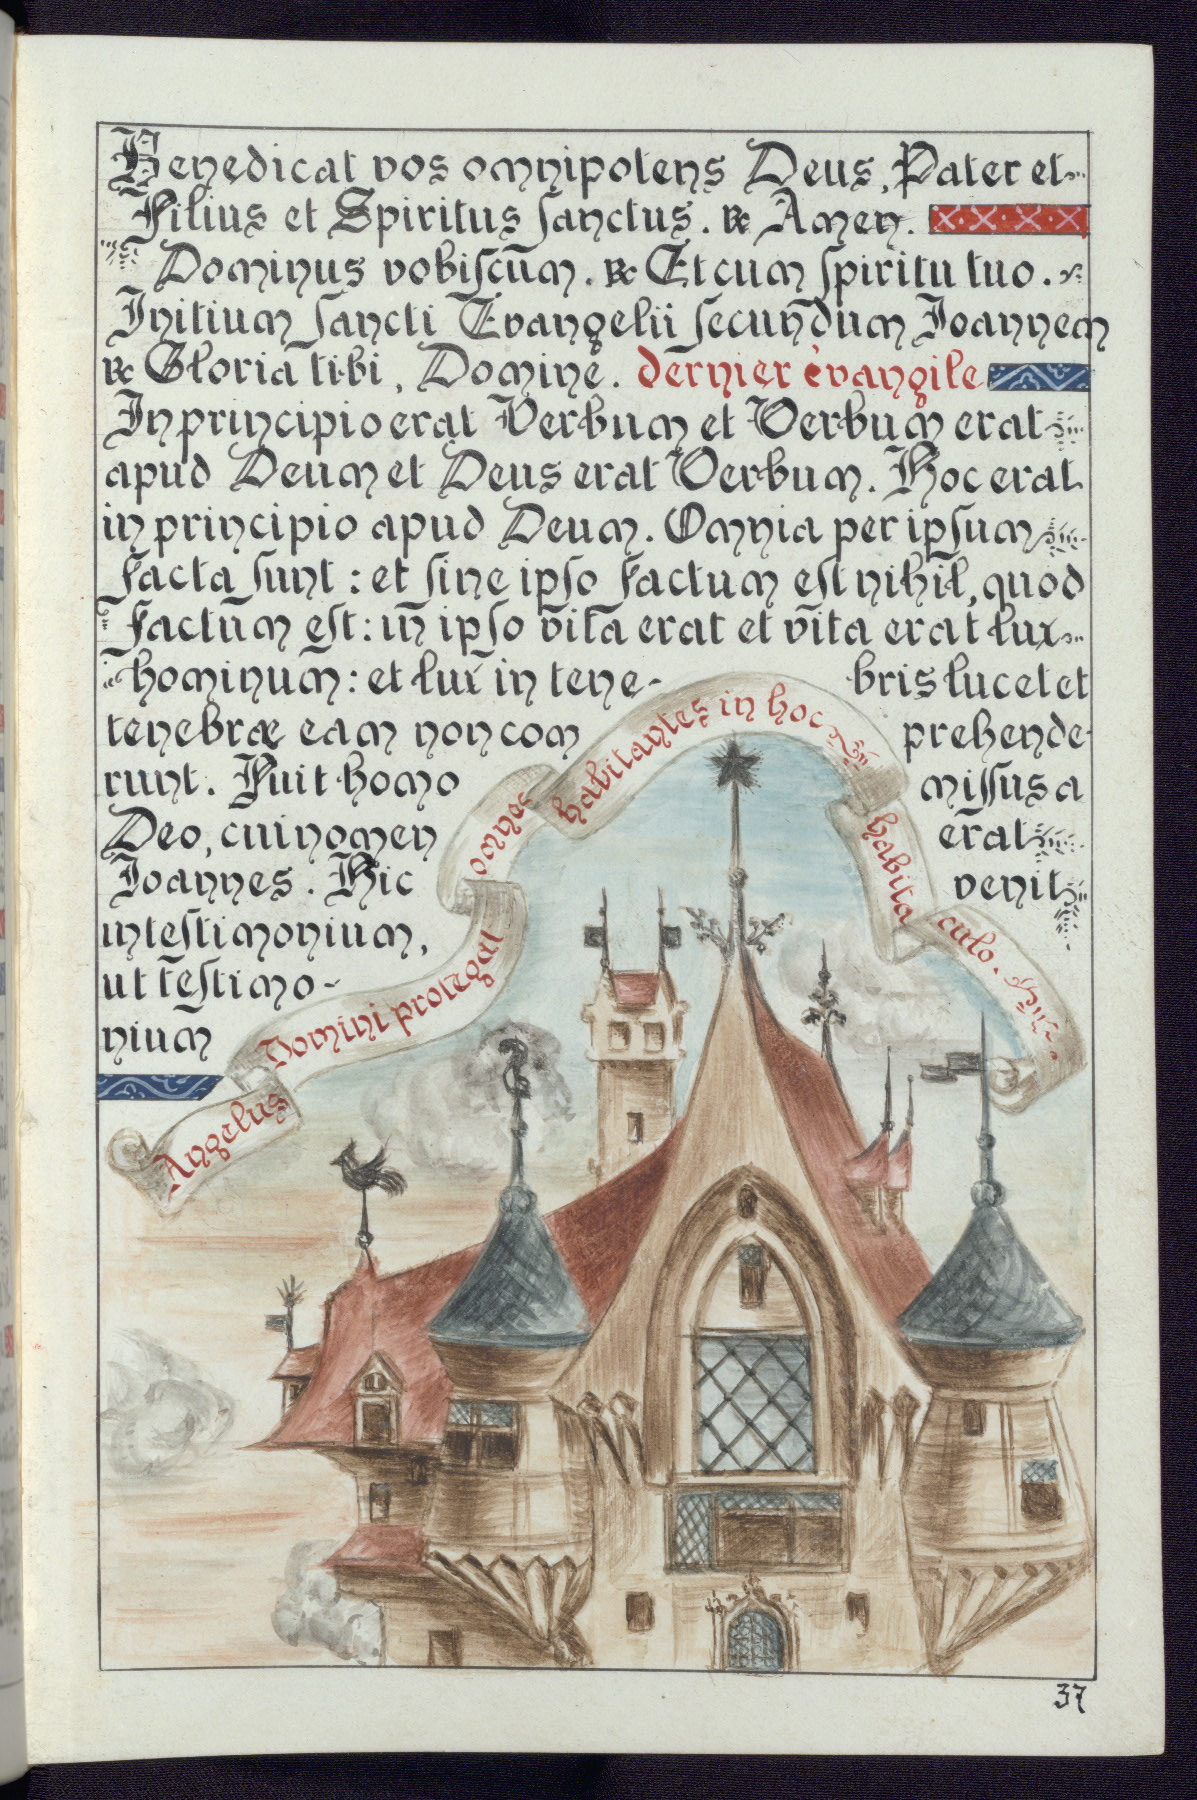 Benedicat vos omnipotens Deus, Pater et
Filius et Spiritus ſanctus. ℟ Amen.
Dominus vobiſcum. ℟ Et cum ſpiritu tuo.
Initium ſancti Evangelii ſecundum Joannem
℟ Gloria tibi, Domine. dernier èvangile
In principio erat Verbum et Verbum erat
apud Deum et Deus erat Verbum. Hoc erat
in principio apud Deum. Omnia per ipſum
facta ſunt : et ſine ipſo factum eſt nihil, quod
factum eſt : in ipſo vita erat et vita erat lux
hominum : et lux in tene- bris lucet et
tenebræ eam non com prehende
runt. Fuit homo miſſus a
Deo, cui nomen erat
Joannes. Hic venit
in teſtimonium,
ut teſtimo-
nium
Angelus Domini protegat omnes habitantes in hoc habita culo.
37